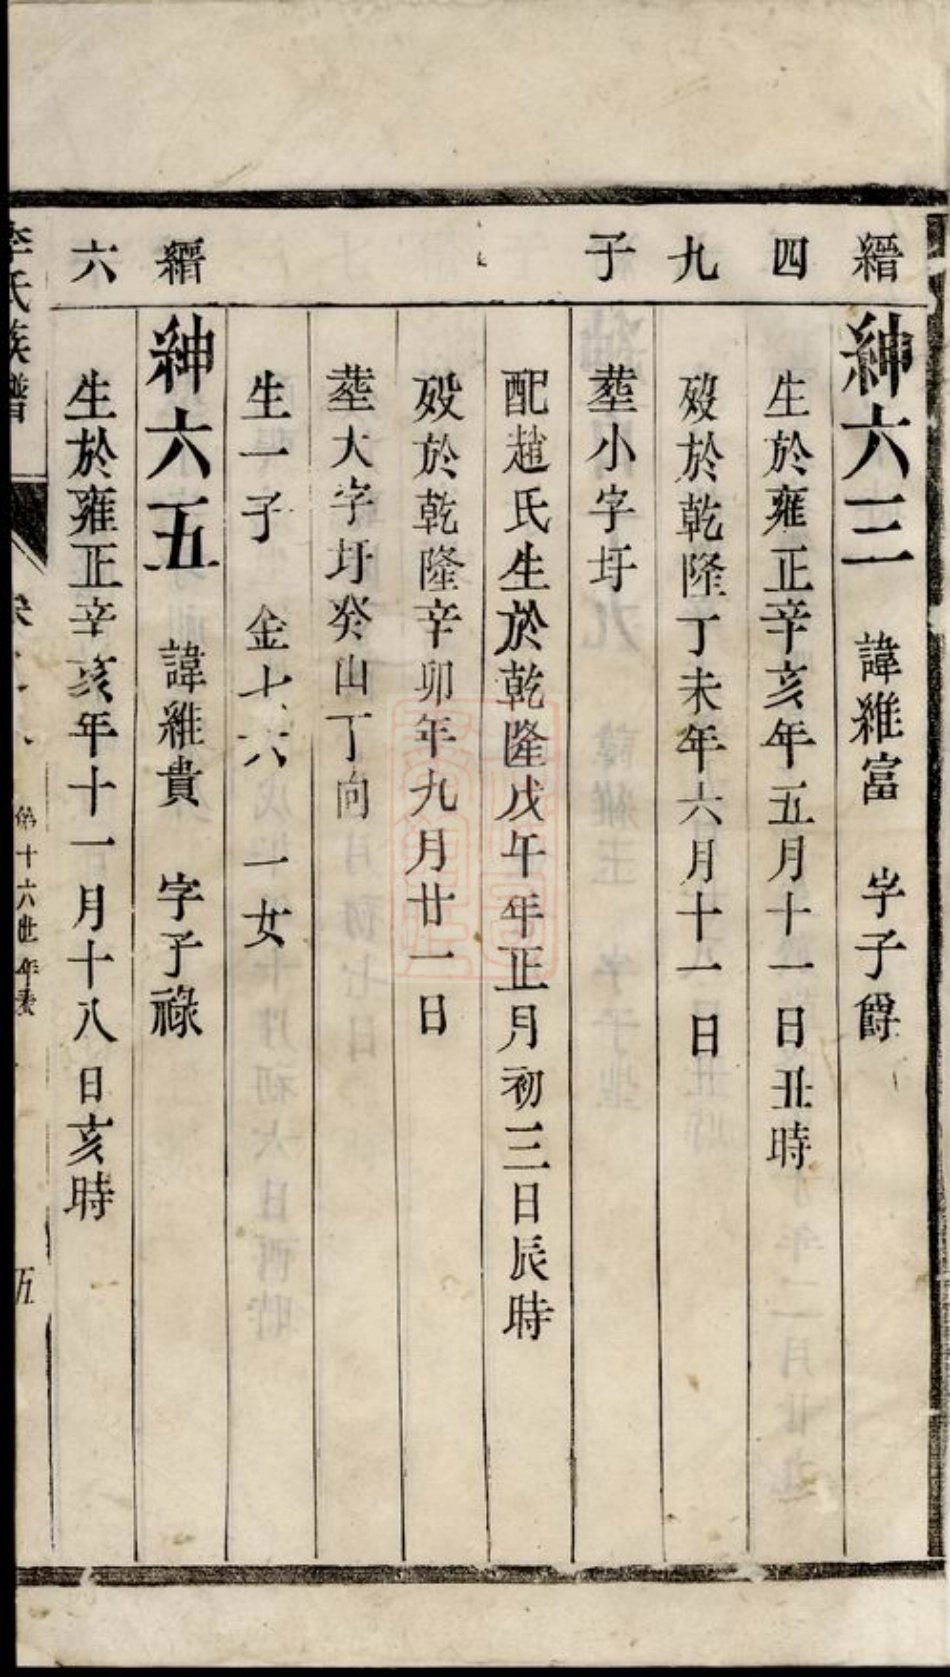 縉四九子
紳六三 諱維富 字子爵
生於雍正辛亥年五月十一日丑時
歿於乾隆丁未年六月十一日
塟小字圩
配趙氏生於乾隆戊午年正月初三日辰時
歿於乾隆辛卯年九月廿一日
塟大字圩癸山丁向
生一子 金七六 一女
縉六
紳六五 諱維貴 字子祿
生於雍正辛亥年十一月十八日亥時
李氏族譜
第十六世年表
五